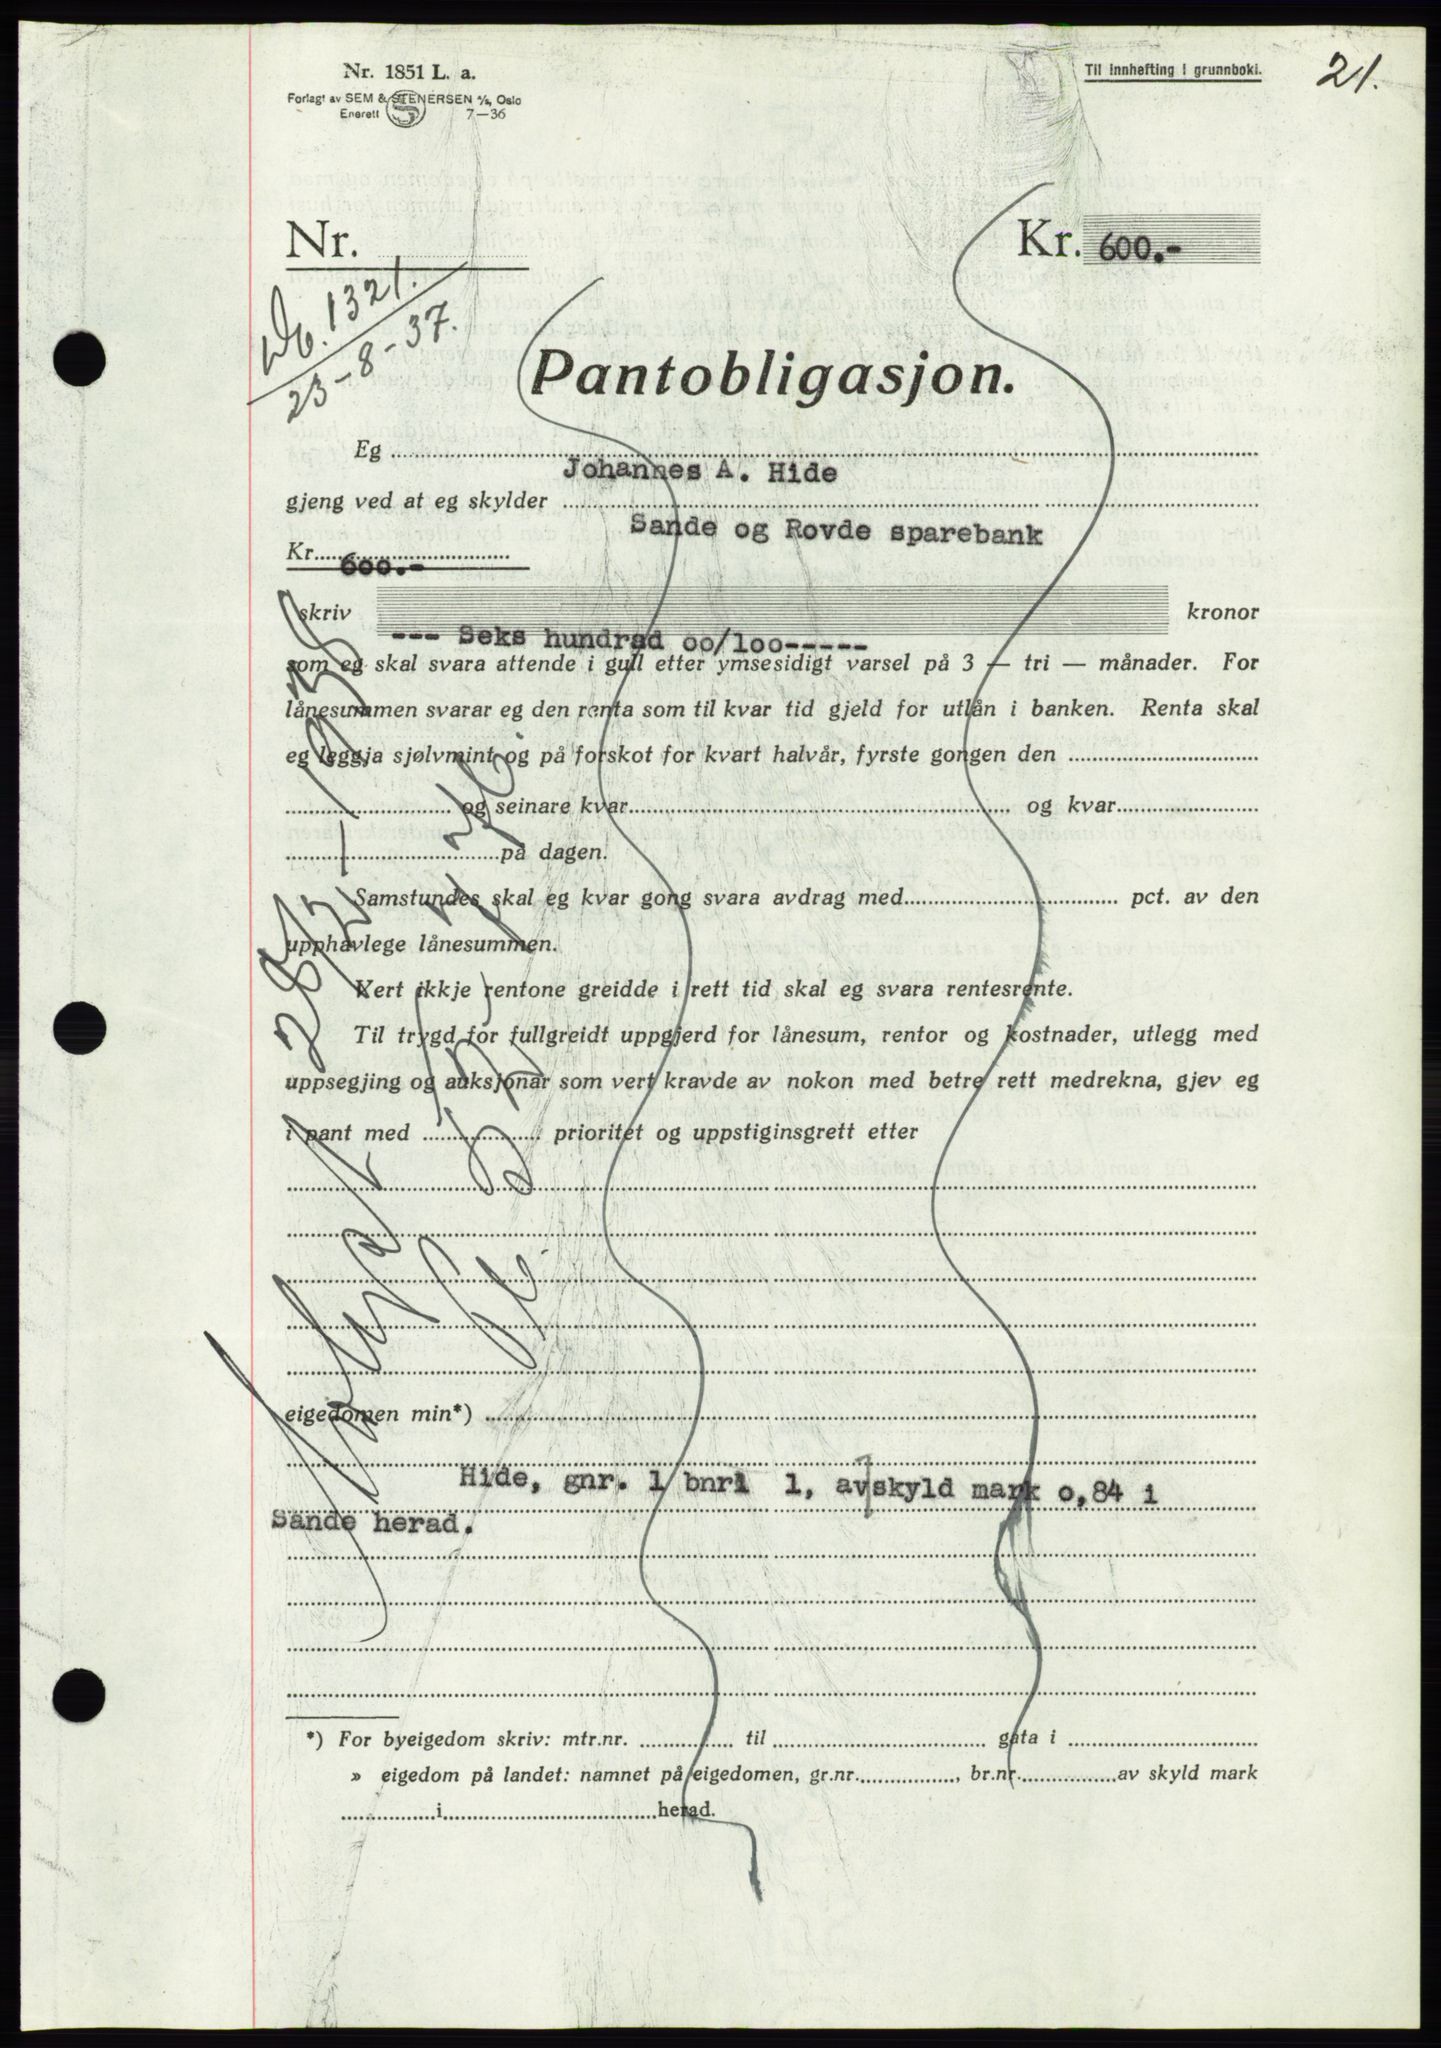 Nr. 1851 L. a.
Forlagt av SEM & STENERSEN A/S, Oslo
Enerett 7—36
Til innhefting i grunnboki.
21.
Nr.
Kr. 600.-
Db. 1321.
23-8-37.
Pantobligasjon.
Eg
Johannes A. Hide
gjeng ved at eg skylder
Sande og Rovde sparebank
Kr.
600.-
skriv kronor
--- Seks hundrad oo/loo-----
som eg skal svara attende i gull etter ymsesidigt varsel på 3 — tri — månader. For
lånesummen svarar eg den renta som til kvar tid gjeld for utlån i banken. Renta skal
eg leggja sjølvmint og på forskot for kvart halvår, fyrste gongen den
og seinare kvar og kvar
på dagen.
Samstundes skal eg kvar gong svara avdrag med pct. av den
upphavlege lånesummen.
Vert ikkje rentone greidde i rett tid skal eg svara rentesrente.
Til trygd for fullgreidt uppgjerd for lånesum, rentor og kostnader, utlegg med
uppsegjing og auksjonar som vert kravde av nokon med betre rett medrekna, gjev eg
i pant med prioritet og uppstiginsgrett etter
eigedomen min*)
Hide, gnr. 1 bnr1 1, av skyld mark o,84 i
Sande herad.
*) For byeigedom skriv: mtr.nr. til gata i
» eigedom på landet: namnet på eigedomen, gr.nr. , br.nr. av skyld mark
i herad.